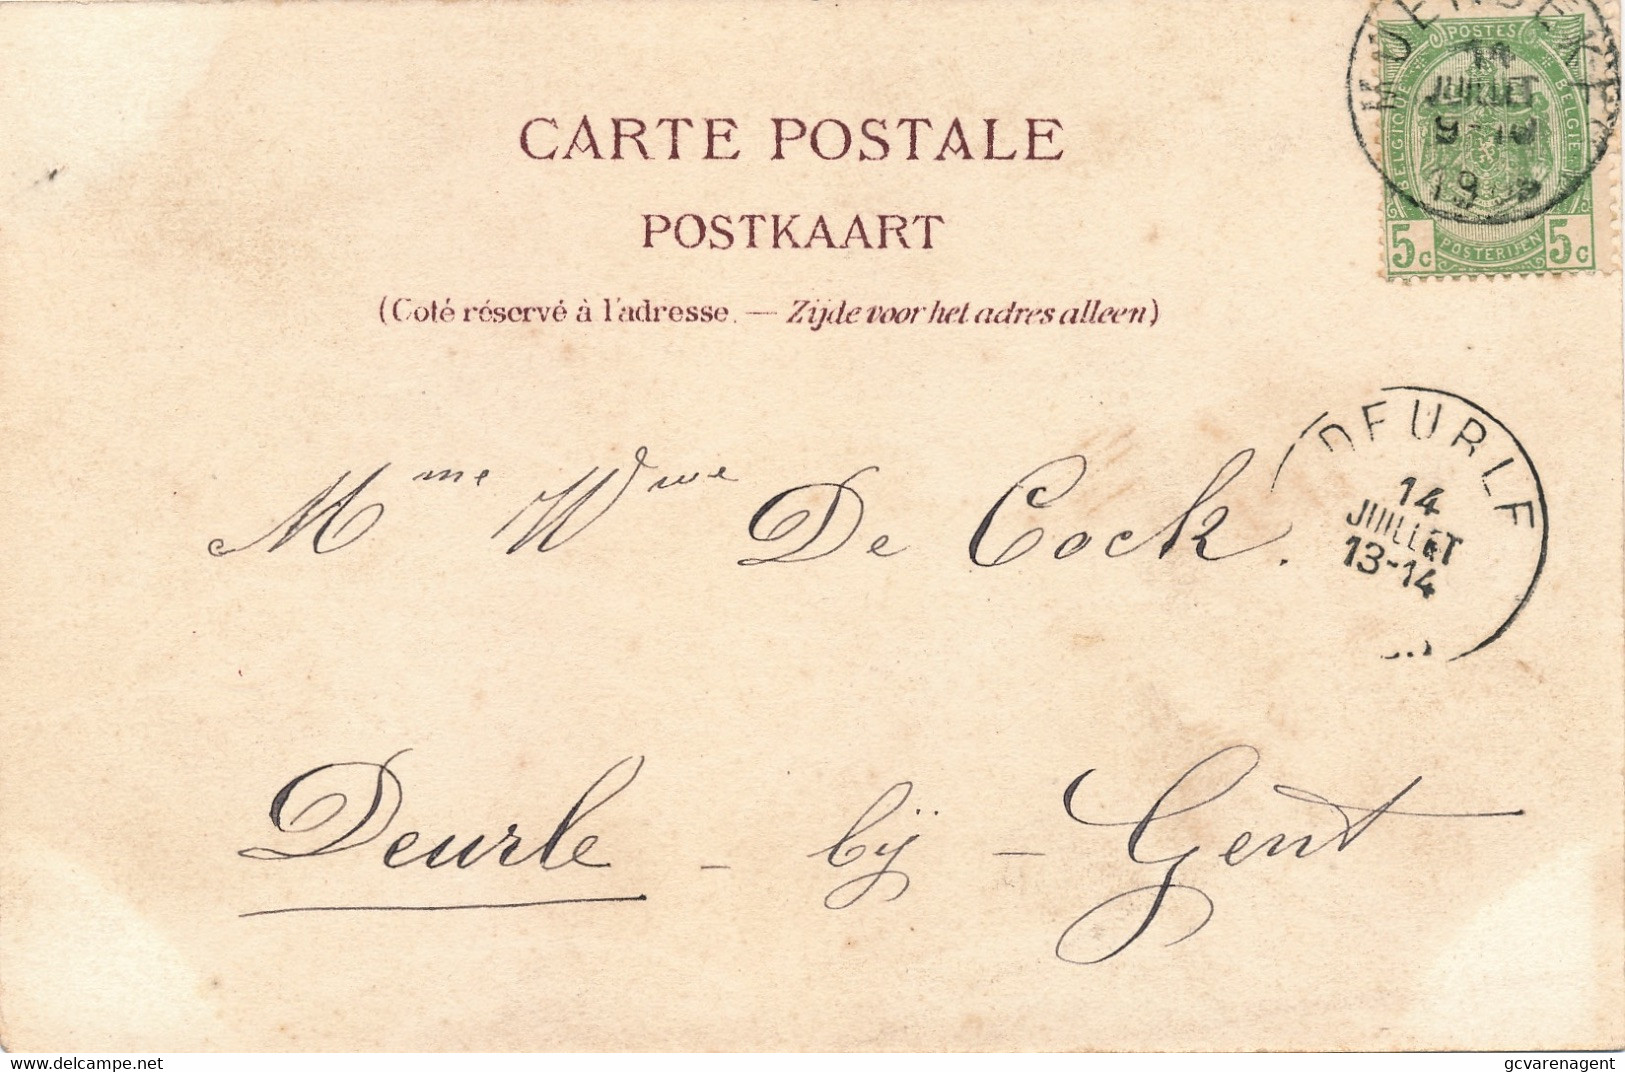 MOERBEKE
POSTES
14
JUILLET
9-10
BELGIQUE
BELGIE
5c POSTERIJEN 5c
CARTE POSTALE
POSTKAART
(Coté réservé à l'adresse. — Zijde voor het adres alleen)
DEURLE
14
JUILLET
13-14
Mme Wwe De Cock.
Deurle - bij - Gent
delcampe.net
gcvarenagent